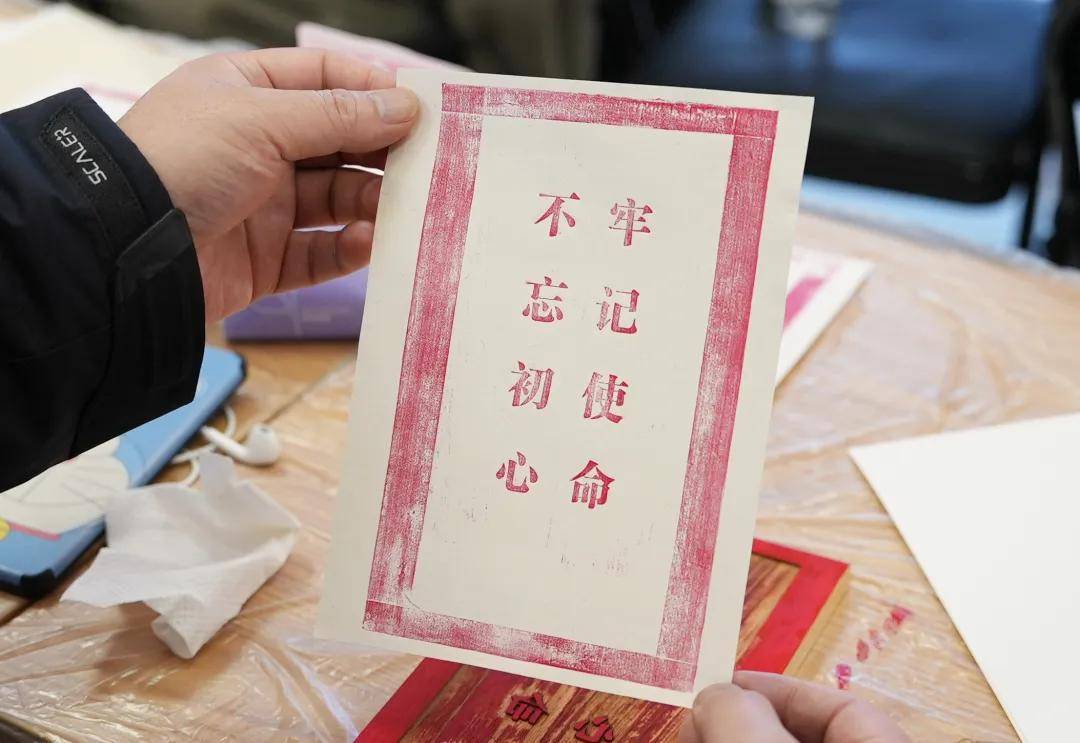 不忘初心
牢记使命
SCALER